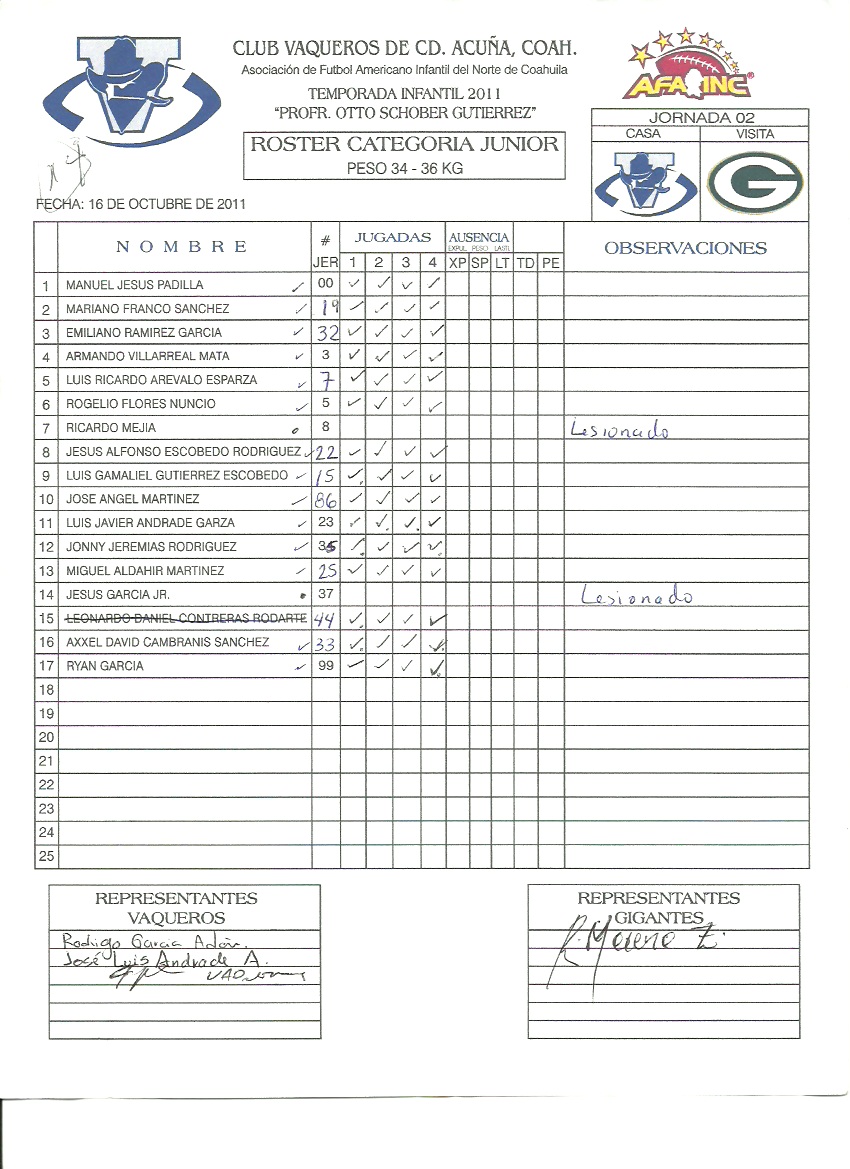 CLUB VAQUEROS DE CD. ACUÑA, COAH.
Asociación de Futbol Americano Infantil del Norte de Coahuila
TEMPORADA INFANTIL 2011
“PROFR. OTTO SCHOBER GUTIERREZ”
ROSTER CATEGORIA JUNIOR
PESO 34 - 36 KG
AFAINC®
JORNADA 02
CASA VISITA
G
FECHA: 16 DE OCTUBRE DE 2011
NOMBRE # JER JUGADAS 1 2 3 4 AUSENCIA EXPUL PESO LAST. XP SP LT TD PE OBSERVACIONES
1 MANUEL JESUS PADILLA ✓ 00 ✓ ✓ ✓ ✓
2 MARIANO FRANCO SANCHEZ ✓ 19 ✓ ✓ ✓ ✓
3 EMILIANO RAMIREZ GARCIA ✓ 32 ✓ ✓ ✓ ✓
4 ARMANDO VILLARREAL MATA ✓ 3 ✓ ✓ ✓ ✓
5 LUIS RICARDO AREVALO ESPARZA ✓ 7 ✓ ✓ ✓ ✓
6 ROGELIO FLORES NUNCIO ✓ 5 ✓ ✓ ✓ ✓
7 RICARDO MEJIA 8 Lesionado
8 JESUS ALFONSO ESCOBEDO RODRIGUEZ ✓ 22 ✓ ✓ ✓ ✓
9 LUIS GAMALIEL GUTIERREZ ESCOBEDO ✓ 15 ✓ ✓ ✓ ✓
10 JOSE ANGEL MARTINEZ ✓ 86 ✓ ✓ ✓ ✓
11 LUIS JAVIER ANDRADE GARZA ✓ 23 ✓ ✓ ✓ ✓
12 JONNY JEREMIAS RODRIGUEZ ✓ 35 ✓ ✓ ✓ ✓
13 MIGUEL ALDAHIR MARTINEZ ✓ 25 ✓ ✓ ✓ ✓
14 JESUS GARCIA JR. 37 Lesionado
15 LEONARDO DANIEL CONTRERAS RODARTE 44 ✓ ✓ ✓ ✓
16 AXXEL DAVID CAMBRANIS SANCHEZ ✓ 33 ✓ ✓ ✓ ✓
17 RYAN GARCIA ✓ 99 ✓ ✓ ✓ ✓
18
19
20
21
22
23
24
25
REPRESENTANTES
VAQUEROS
Rodrigo Garcia
José Luis Andrade A.
REPRESENTANTES
GIGANTES
R. Moreno Z.